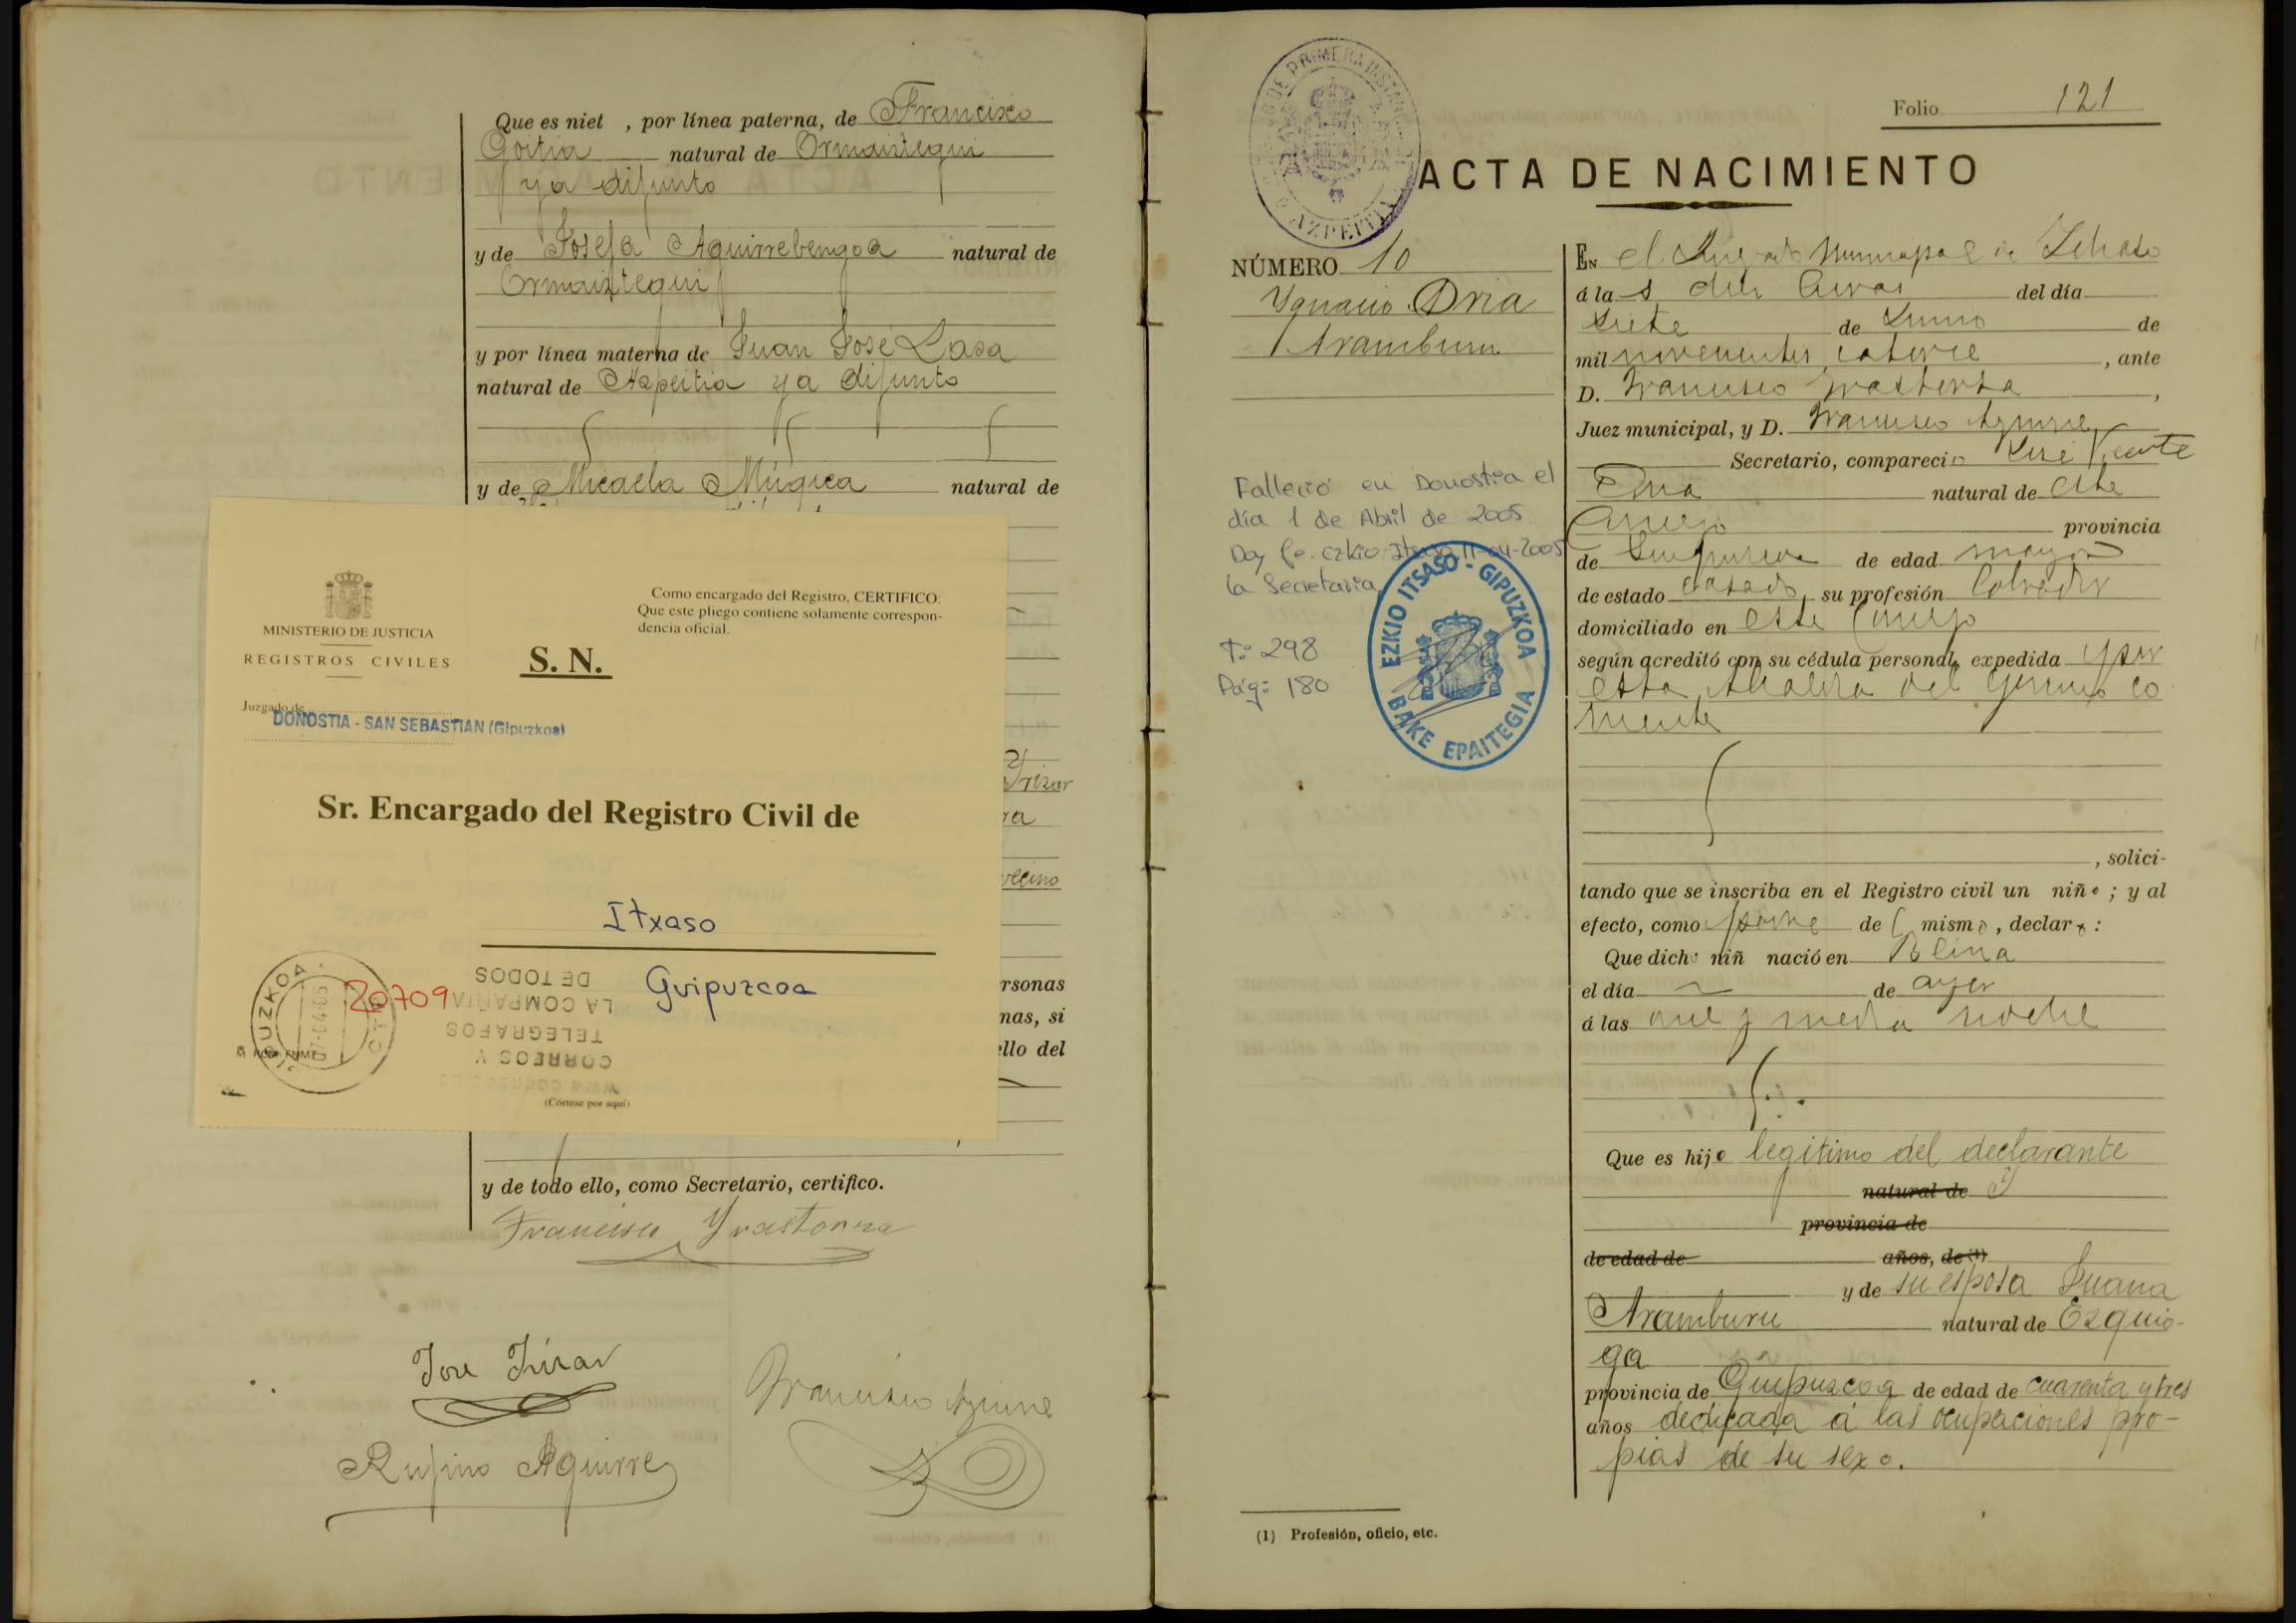 Que es niet , por línea paterna, de Francisco
Goitia natural de Ormaiztegui
ya difunto
y de Josefa Aguirrebengoa natural de
Ormaiztegui
y por línea materna de Juan José Lasa
natural de Azpeitia ya difunto
y de Micaela Múgica natural de
MINISTERIO DE JUSTICIA
REGISTROS CIVILES
S. N.
Como encargado del Registro, CERTIFICO:
Que este pliego contiene solamente correspon-
dencia oficial.
Juzgado de
DONOSTIA - SAN SEBASTIAN (Gipuzkoa)
Sr. Encargado del Registro Civil de
Itxaso
20709 Guipuzcoa
DE TODOS
LA COMPAÑIA
TELEGRAFOS
CORREOS Y
WWW.CORREOS.ES
(Córtese por aquí)
vecino
rsonas
nas, si
ello del
y de todo ello, como Secretario, certifico.
Francisco Yrastorza
José Irízar
Francisco Aguirre
Rufino Aguirre
JUZGADO DE PRIMERA INSTANCIA
AZPEITIA
Folio 121
ACTA DE NACIMIENTO
NÚMERO 10
Ygnacio Oria
Aramburu
Falleció en Donostia el
día 1 de Abril de 2005
Doy fe. Ezkio-Itsaso 11-04-2005
la Secretaria
Tº 298
Pág: 180
EZKIO ITSASO - GIPUZKOA
BAKE EPAITEGIA
En el Juzgado Municipal de Ichaso
á las diez horas del día
siete de Junio de
mil novecientos catorce , ante
D. Francisco Yrastorza ,
Juez municipal, y D. Francisco Aguirre
Secretario, compareció José Vicente
Oria natural de este
Concejo provincia
de Guipuzcoa de edad mayor
de estado casado, su profesión labrador
domiciliado en este Concejo
según acreditó con su cédula personal, expedida por
esta Alcaldia del ejercicio co
rriente
, solici-
tando que se inscriba en el Registro civil un niño ; y al
efecto, como padre de l mismo, declaró:
Que dicho niñ nació en
el día de ayer
á las once y media noche
Que es hijo legítimo del declarante
natural de
provincia de
de edad de años, de (1)
y de su esposa Juana
Aramburu natural de Ezquio-
ga
provincia de Guipuzcoa de edad de cuarenta y tres
años dedicada á las ocupaciones pro-
pias de su sexo.
(1) Profesión, oficio, etc.